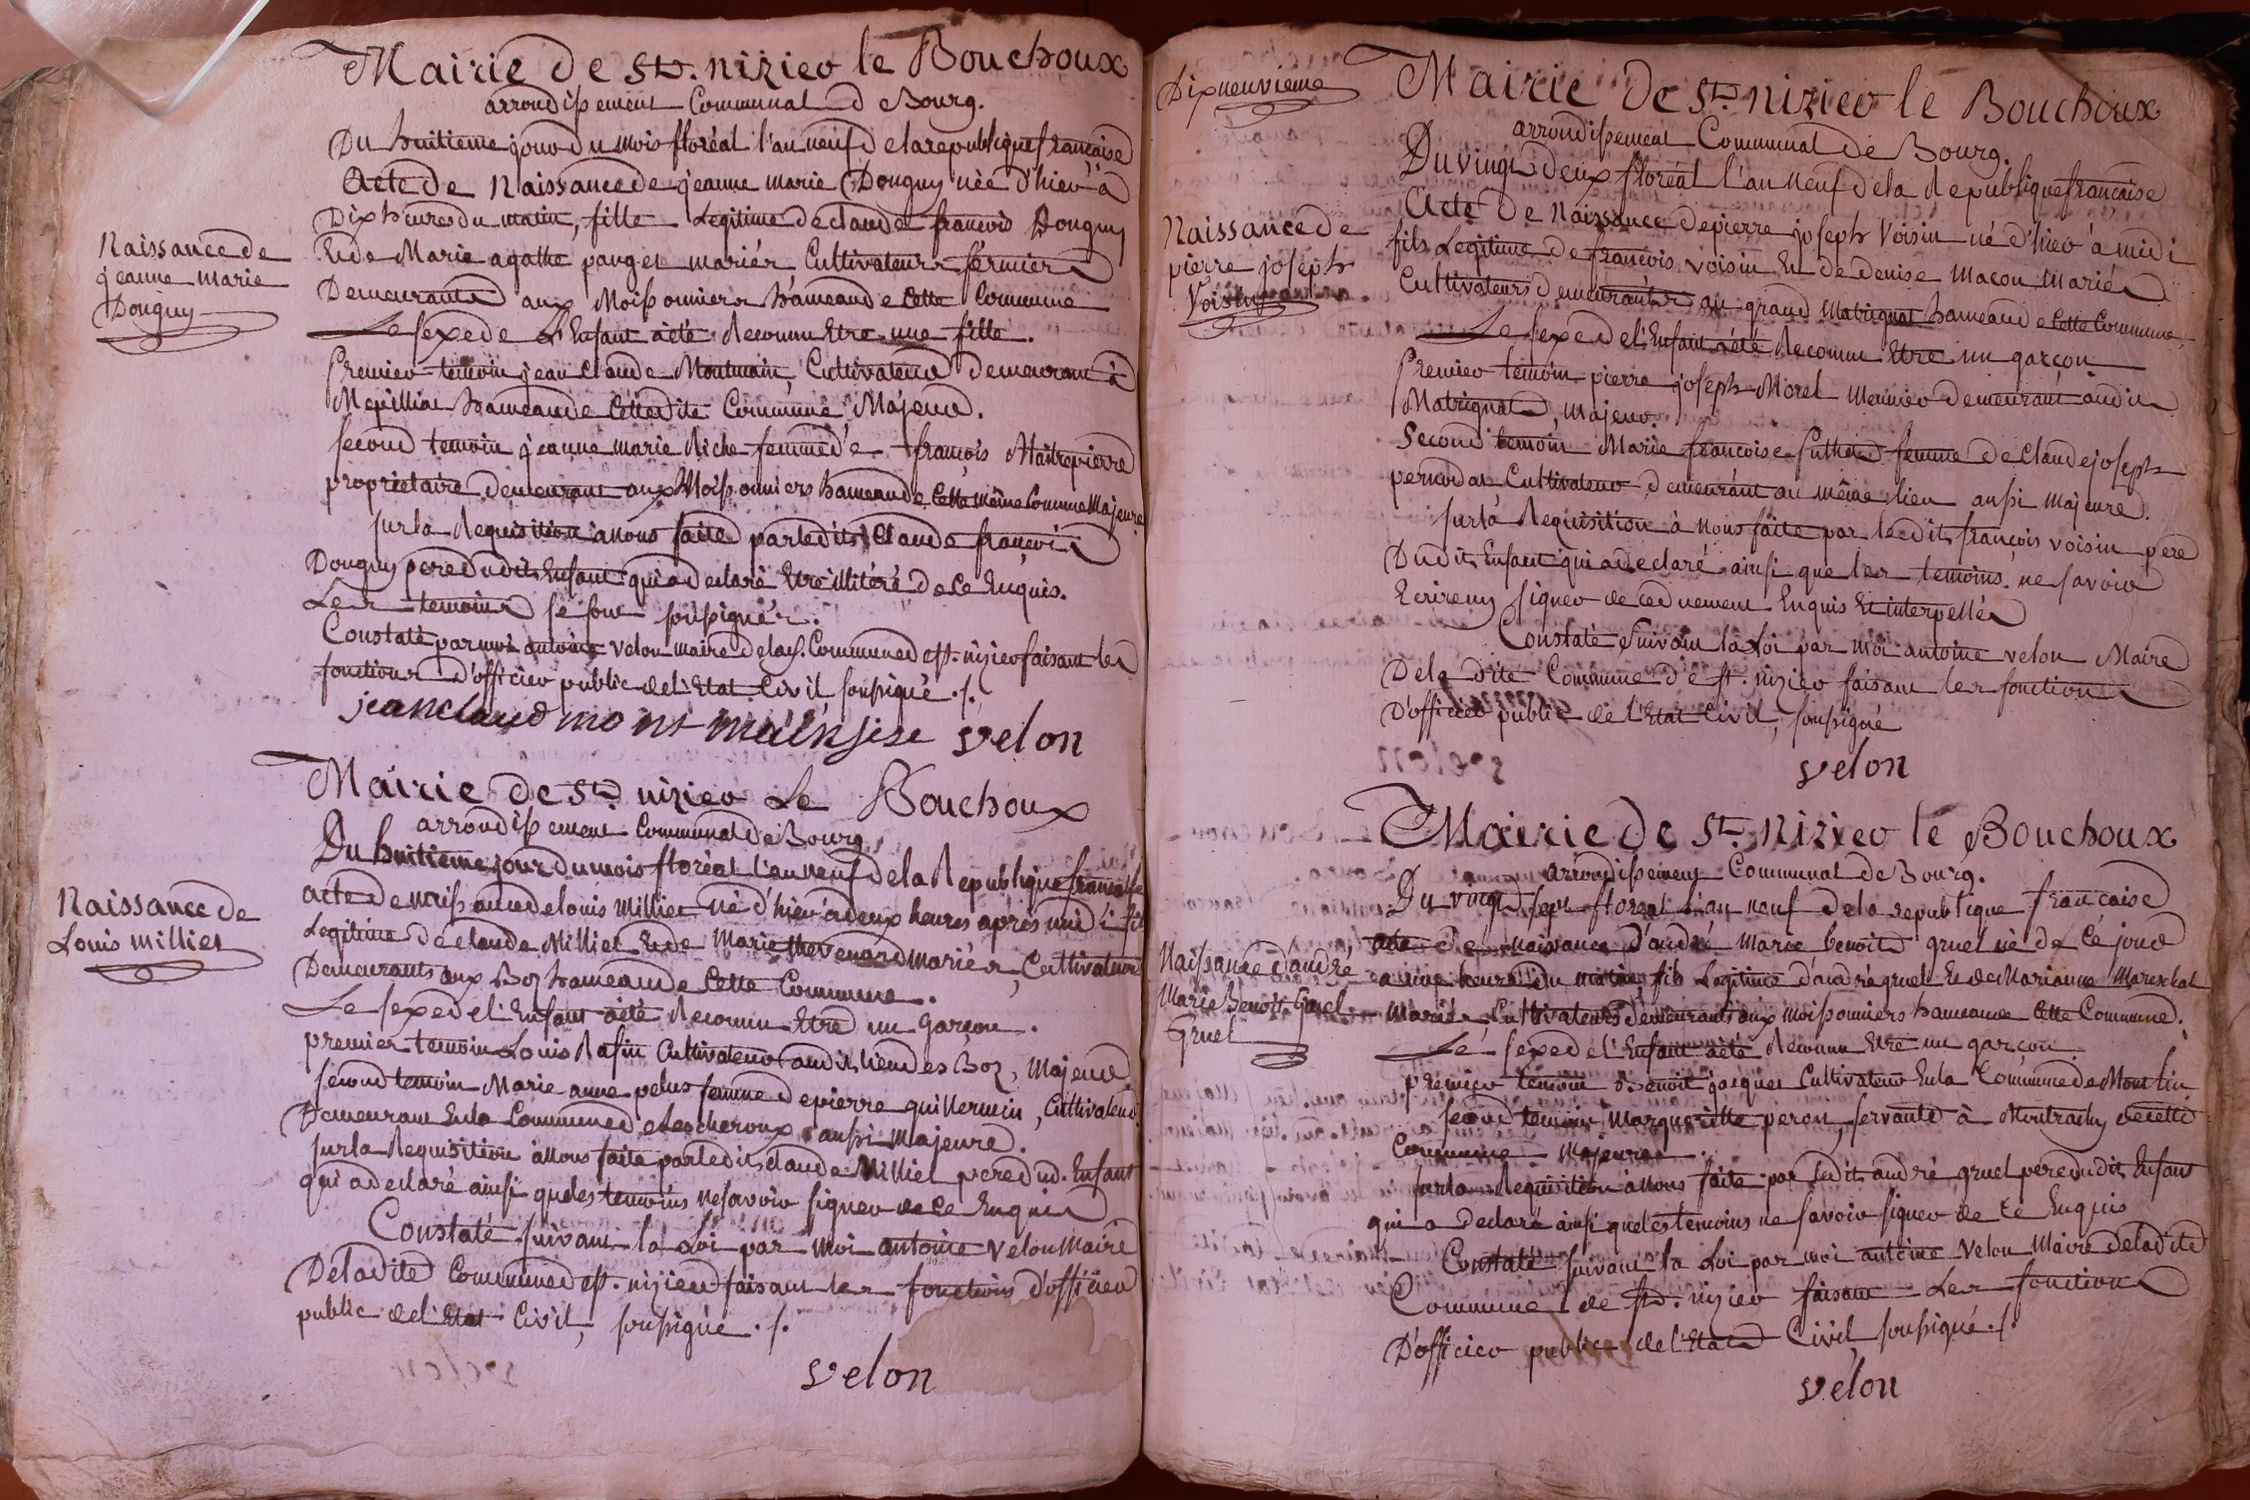 Mairie de St. nizier le Bouchoux
arrondissement Communal de Bourg.
Du huitieme jour du mois floréal l'an neuf de la republique française
Acte de Naissance de jeanne marie Donguy née d'hier à
Dix heures du matin, fille Legitime de claude françois Donguy
Et de Marie agathe panget mariés Cultivateurs fermiers
Demeurants aux Moissonniers hameau de cette Commune
Le sexe de l'Enfant a été Reconnu Etre une fille.
Premier temoin jean claude Montmain, Cultivateur demeurant à
Mépilliat hameau de Cette dite Commune, Majeur.
second temoin jeanne marie Riche femme de françois Maitrepierre
proprietaire demeurant aux Moissonniers hameau de Cette même Commune Majeure
sur la Requisition à nous faite par le dit Claude françois
Donguy pere du dit Enfant qui a declaré Etre illitéré de ce Enquis.
Les temoins se sont soussignés.
Constaté par moi antoine velon maire de la s. Commune de st. nizier faisant les
fonctions d'officier public de l'Etat Civil soussigné ./.
jean claud mont main sise velon
Naissance de
jeanne marie
Donguy
Mairie de St. nizier Le Bouchoux
arrondissement Communal de Bourg.
Du huitieme jour du mois floréal l'an neuf de la Republique française
acte de naissance de louis Milliet né d'hier à deux heures après midi fils
Legitime de claude Milliet Et de Marie thevenard mariés, Cultivateurs
Demeurants aux Boz hameau de Cette Commune.
Le sexe de l'Enfant a été Reconnu Etre un garçon.
premier temoin Louis Rafin Cultivateur au dit lieu des Boz, Majeur
second temoin Marie anne pelus femme de pierre guillermin, Cultivateur
Demeurant En la Commune de Lescheroux aussi Majeure.
sur la Requisition à Nous faite par le dit claude Milliet pere du d. Enfant
qui a declaré ainsi que les temoins ne savoir signer de ce Enquis
Constaté suivant la Loi par moi antoine velon Maire
De la dite Commune de st. nizier faisant les fonctions d'officier
public de l'Etat Civil, soussigné ./.
velon
Naissance de
Louis milliet
Dixneuvieme
Mairie de St. nizier le Bouchoux
arrondissement Communal de Bourg.
Du vingt deux floréal l'an Neuf de la Republique française
Acte De Naissance de pierre joseph Voisin né d'hier à midi
fils Legitime de françois voisin Et de denise Macon Mariés
Cultivateurs demeurants au grand Matrignat hameau de Cette Commune.
Le sexe de l'Enfant a été Reconnu Etre un garçon
Premier temoin pierre joseph Morel Meunier demeurant au dit
Matrignat, majeur.
Second temoin Marie françoise femme de Claude joseph
Cultivateur demeurant au même lieu aussi Majeure.
sur la Requisition à Nous faite par le dit françois voisin pere
Du dit Enfant qui a declaré ainsi que les temoins ne savoir
Ecrire ny signer de ce duement Enquis Et interpellés
Constaté suivant la Loi par moi antoine velon Maire
De la dite Commune de st. nizier faisant les fonctions
D'officier public de l'Etat Civil, soussigné
velon
Naissance de
pierre joseph
Voisin
Mairie de St. nizier le Bouchoux
arrondissement Communal de Bourg.
Du vingt sept floreal l'an neuf de la republique française
acte de naissance d'andré Marie benoit gruel né de ce jour
a une heure du matin fils Legitime d'andré gruel Et de Marianne Mareschal
Mariés Cultivateurs demeurants aux moissonniers hameau de Cette Commune.
Le sexe de l'Enfant a été Reconnu Etre un garçon
premier temoin Benoit jacques Cultivateur En la Commune de Montlin
second temoin Marguerite peron, servante à Montrachy de cette
Commune Majeures.
sur la Requisition à Nous faite par le dit andré gruel pere du dit Enfant
qui a declaré ainsi que les temoins ne savoir signer de ce Enquis
Constaté suivant la Loi par moi antoine velon Maire de la dite
Commune de st. nizier faisant Les fonctions
D'officier public de l'Etat Civil soussigné ./.
velon
Naissance d'andré
Marie Benoit Gruel
Gruel